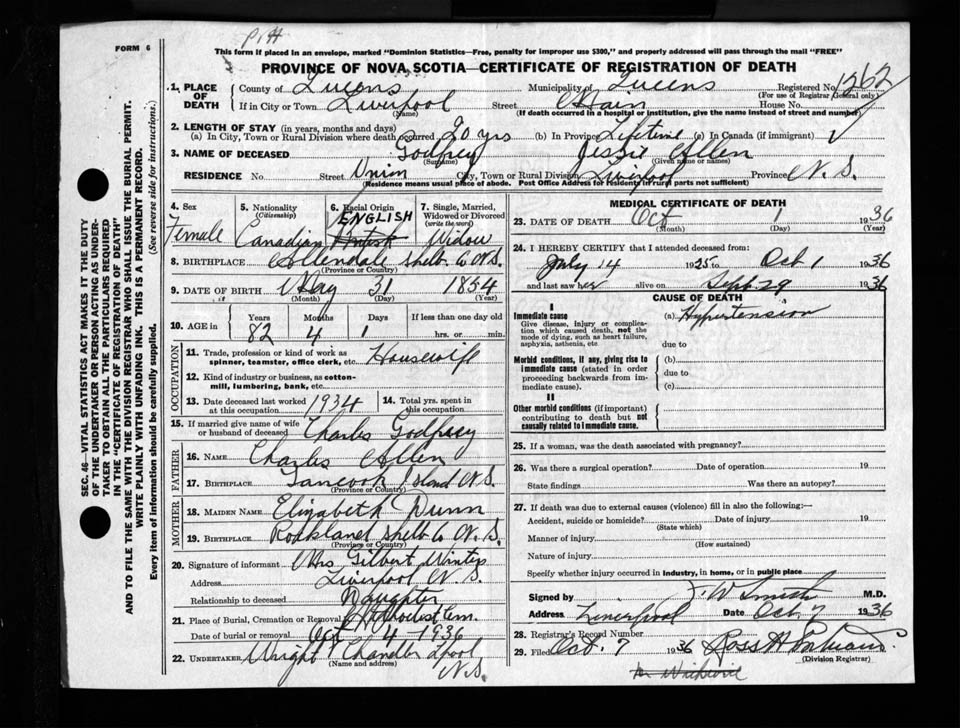 FORM 6
This form if placed in an envelope, marked "Dominion Statistics—Free, penalty for improper use $300," and properly addressed will pass through the mail "FREE"
PROVINCE OF NOVA SCOTIA—CERTIFICATE OF REGISTRATION OF DEATH
1. PLACE OF DEATH County of Queens Municipality of Queens Registered No. 1262
(For use of Registrar General only)
If in City or Town Liverpool Street Main House No.
(Name) (If death occurred in a hospital or institution, give the name instead of street and number)
2. LENGTH OF STAY (in years, months and days)
(a) In City, Town or Rural Division where death occurred 20 yrs (b) In Province Lifetime (c) In Canada (if immigrant)
3. NAME OF DECEASED Godfrey Jessie Allen
(Surname) (Given name or names)
RESIDENCE No. Street Union City, Town or Rural Division Liverpool Province N.S.
(Residence means usual place of abode. Post Office Address for residents in rural parts not sufficient)
4. Sex Female
5. Nationality (Citizenship) Canadian
6. Racial Origin ENGLISH
7. Single, Married, Widowed or Divorced (write the word) Widow
8. BIRTHPLACE Allendale Shelb Co N.S.
(Province or Country)
9. DATE OF BIRTH May 31 1854
(Month) (Day) (Year)
10. AGE in Years Months Days If less than one day old
82 4 1 hrs. or min.
OCCUPATION
11. Trade, profession or kind of work as spinner, teamster, office clerk, etc. Housewife
12. Kind of industry or business, as cotton-mill, lumbering, bank, etc.
13. Date deceased last worked at this occupation 1934
14. Total yrs. spent in this occupation
15. If married give name of wife or husband of deceased Charles Godfrey
FATHER
16. Name Charles Allen
17. BIRTHPLACE Tancook Island N.S.
(Province or Country)
MOTHER
18. MAIDEN NAME Elizabeth Dunn
19. BIRTHPLACE Shelb Co N.S.
(Province or Country)
20. Signature of informant Mrs Gilbert Winters
Address Liverpool N.S.
Relationship to deceased Daughter
21. Place of Burial, Cremation or Removal Methodist Cem.
Date of burial or removal Oct 4 1936
22. UNDERTAKER Wright Chandler Lpool N.S.
(Name and address)
MEDICAL CERTIFICATE OF DEATH
23. DATE OF DEATH Oct 1 1936
(Month) (Day) (Year)
24. I HEREBY CERTIFY that I attended deceased from:
July 14 1925 to Oct 1 1936
and last saw her alive on Sept 29 1936
CAUSE OF DEATH
I
Immediate cause (a) Hypertension
Give disease, injury or complication which caused death, not the mode of dying, such as heart failure, asphyxia, asthenia, etc. due to
Morbid conditions, if any, giving rise to immediate cause (stated in order proceeding backwards from immediate cause). (b) due to (c)
II
Other morbid conditions (if important) contributing to death but not causally related to immediate cause.
25. If a woman, was the death associated with pregnancy?
26. Was there a surgical operation? Date of operation 19
State findings Was there an autopsy?
27. If death was due to external causes (violence) fill in also the following:—
Accident, suicide or homicide? Date of injury 19
(State which)
Manner of injury
(How sustained)
Nature of injury
Specify whether injury occurred in industry, in home, or in public place
Signed by J. W. Smith M.D.
Address Liverpool Date Oct. 7 1936
28. Registrar's Record Number
29. Filed Oct. 7 1936 Ross H
(Division Registrar)
SEC. 46—VITAL STATISTICS ACT MAKES IT THE DUTY
OF THE UNDERTAKER OR PERSON ACTING AS UNDER-
TAKER TO OBTAIN ALL THE PARTICULARS REQUIRED
IN THE "CERTIFICATE OF REGISTRATION OF DEATH"
AND TO FILE THE SAME WITH THE DIVISION REGISTRAR WHO SHALL ISSUE THE BURIAL PERMIT.
WRITE PLAINLY WITH UNFADING INK. THIS IS A PERMANENT RECORD.
Every item of information should be carefully supplied. (See reverse side for instructions.)